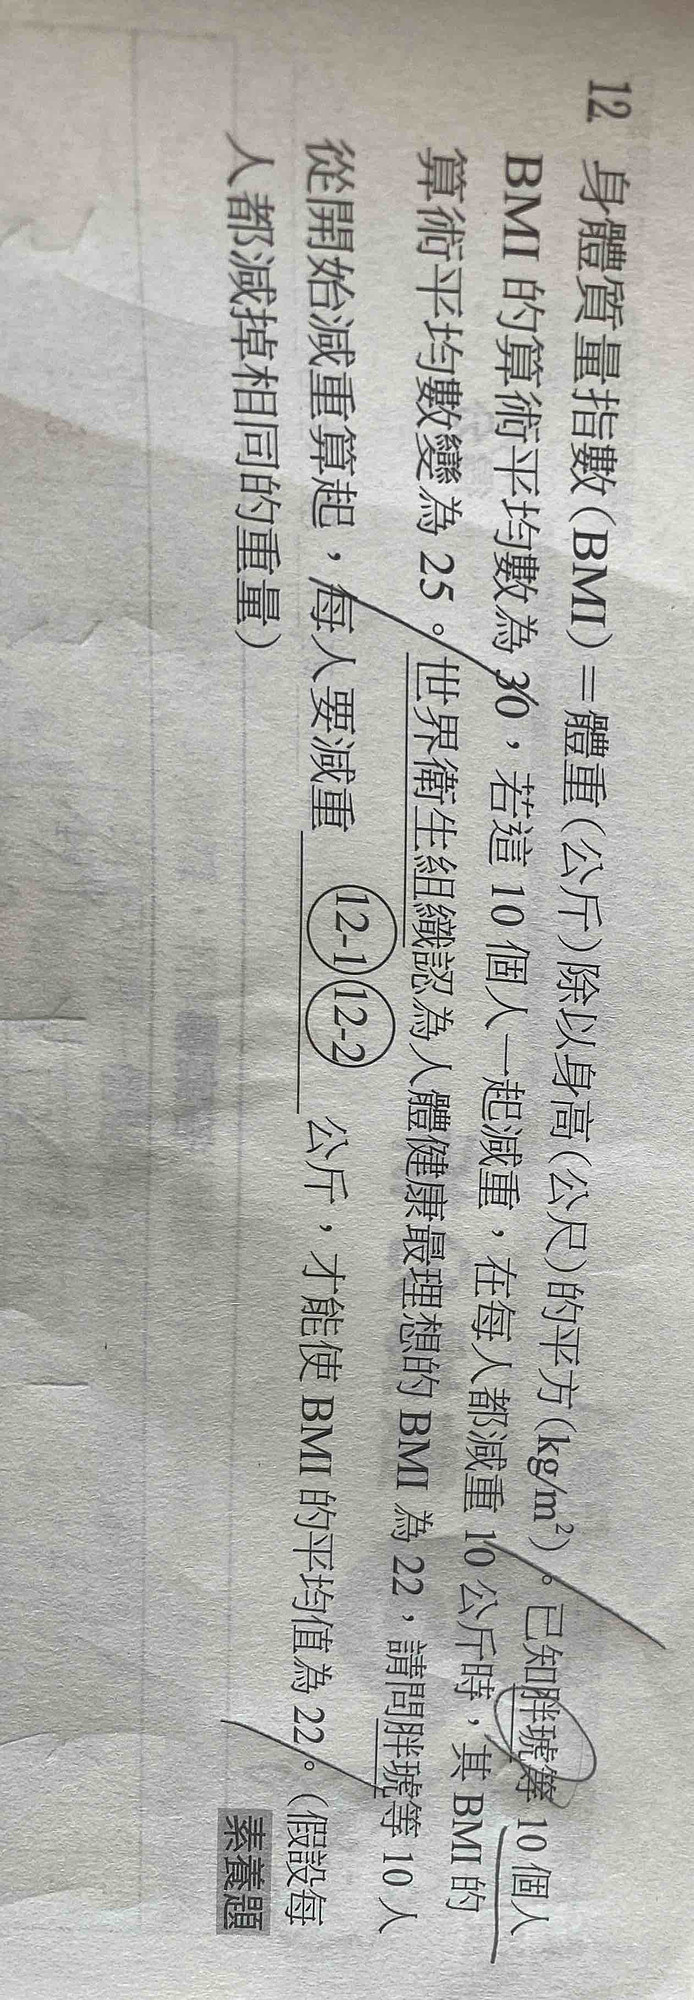 12. 身體質量指數(BMI)=體重(公斤)除以身高(公尺)的平方(kg/m²)。已知胖琥等 10 個人
BMI 的算術平均數為 30,若這 10 個人一起減重,在每人都減重 10 公斤時,其 BMI 的
算術平均數變為 25。世界衛生組織認為人體健康最理想的 BMI 為 22,請問胖琥等 10 人
從開始減重算起,每人要減重 12-1 12-2 公斤,才能使 BMI 的平均值為 22。(假設每
人都減掉相同的重量)
素養題